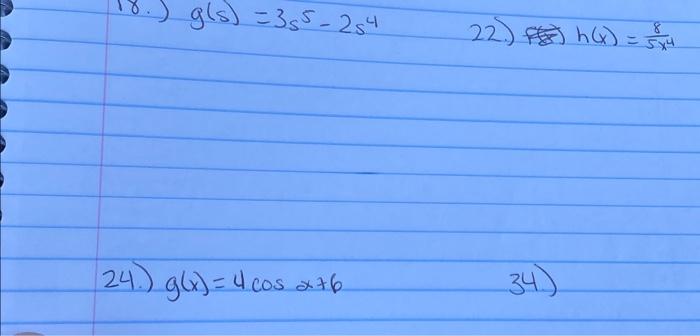 18.) g(s) = 3s⁵ - 2s⁴
22.) h(x) = 8/5x⁴
24.) g(x) = 4 cos x + 6
34.)